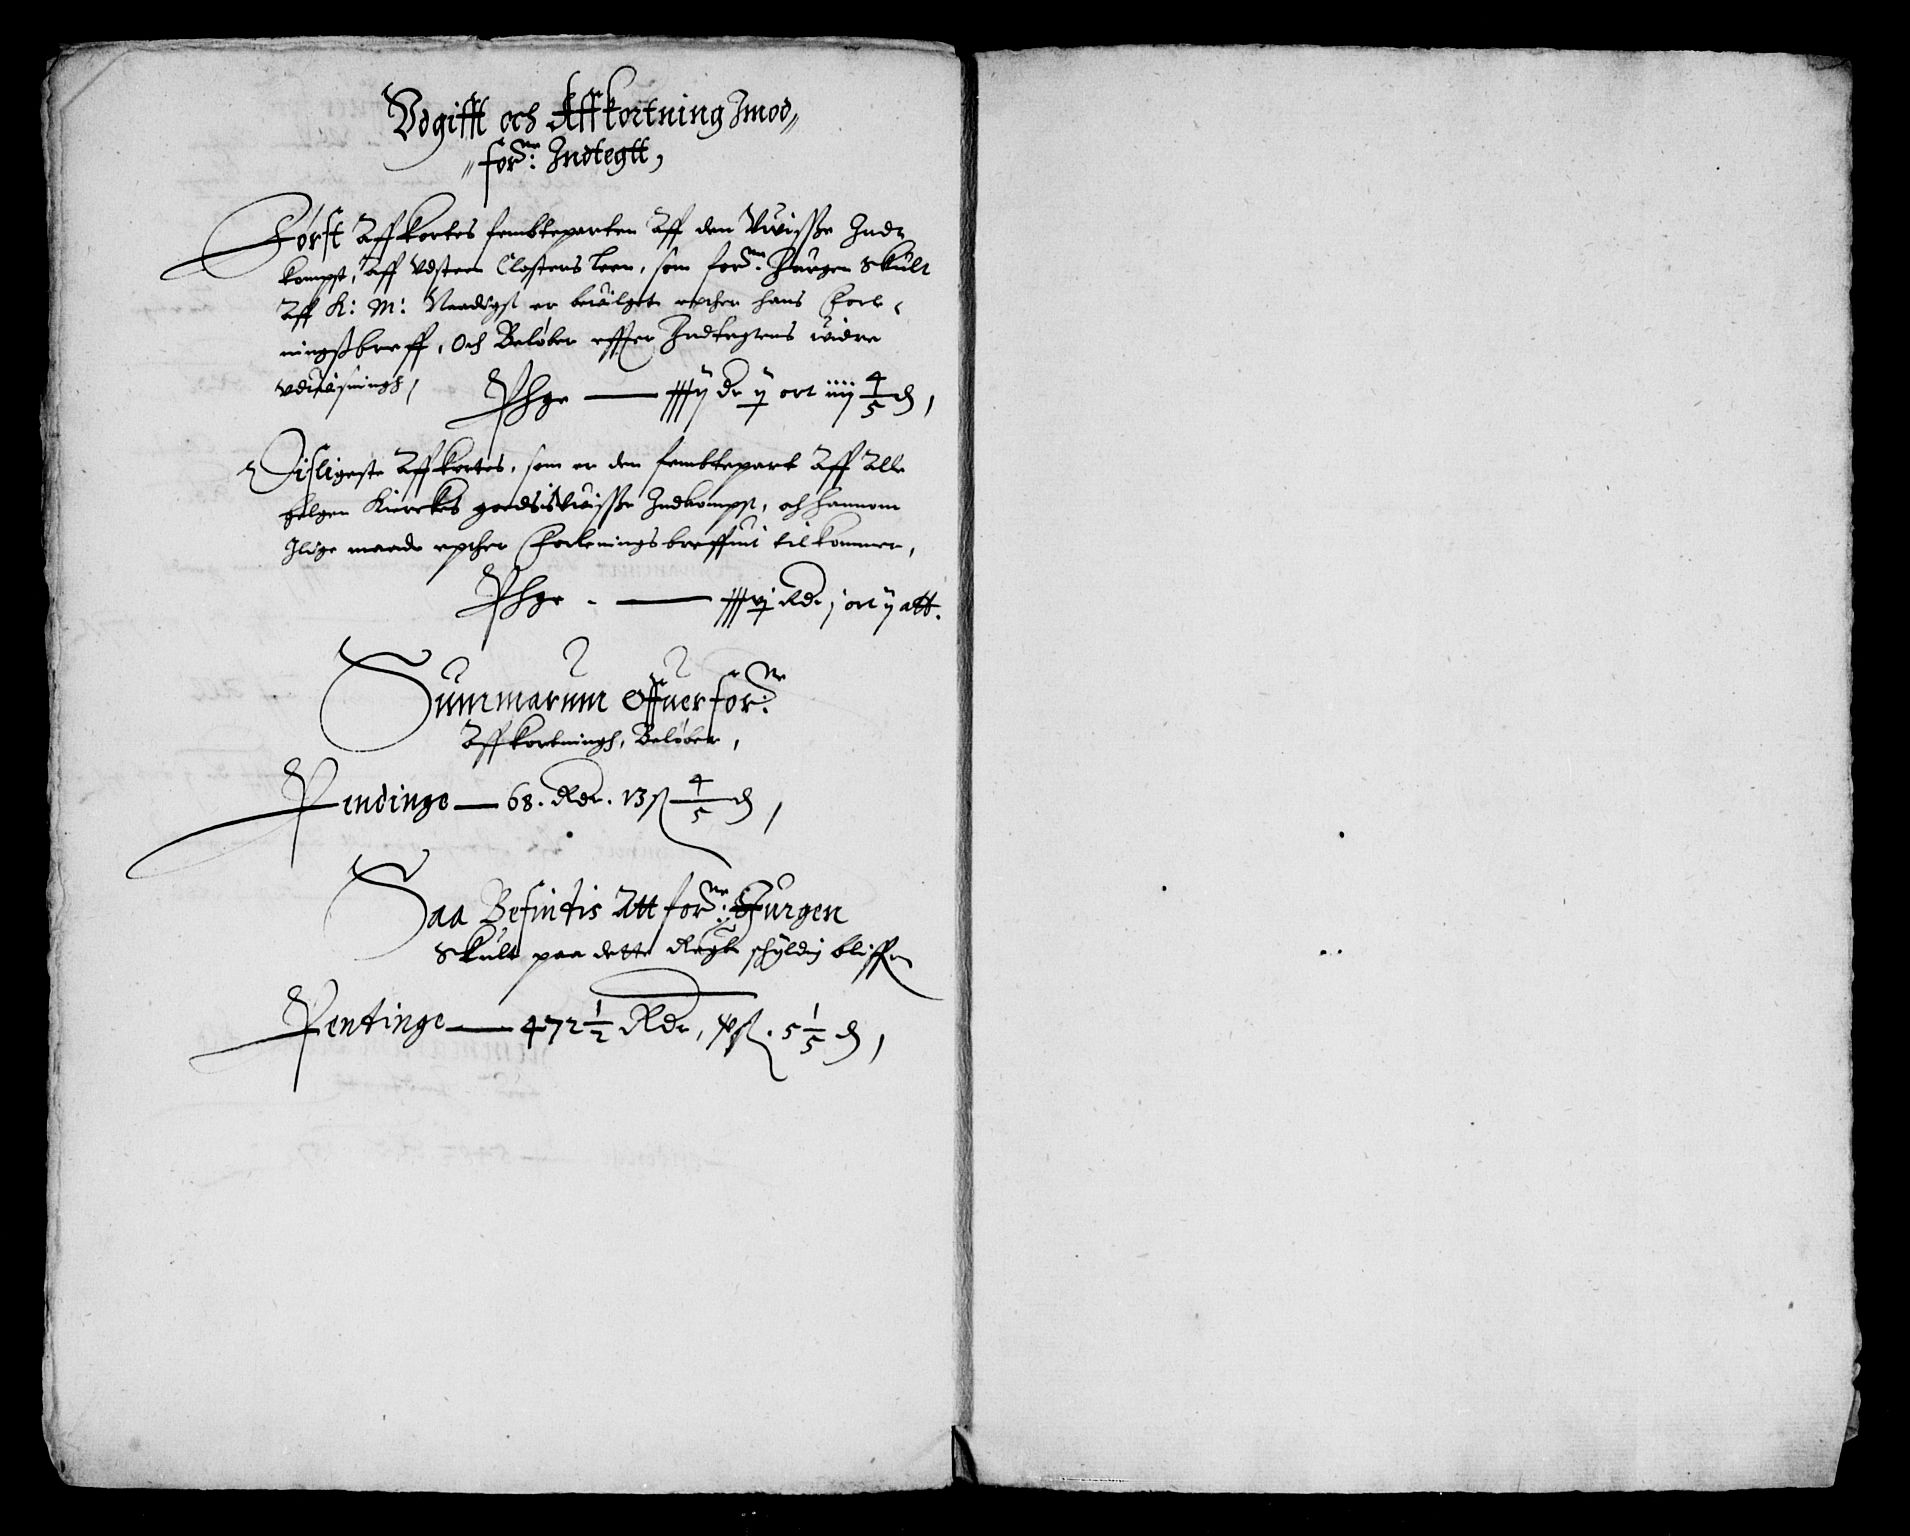 Vdgifft och Affkortning Imod//
//for:ne Indtegtt,
Først Affkortes fembteparten Aff den Vuisße Ind=
kompst, Aff Vdsteen Closters Leen, som for:ne Jurgen Skult
Aff K: M: Naadigst er beuilget epther hans Forle=
ningsßbreff, Och Beløber effter Indtegtens widre
vduisningh,
Phge —— xxxij dr ij ort iiij 4/5 ₰,
Disligeste Affkortes, som er den fembtepart Aff Alle
helgen Kierckes goedsis Vuisße Indkompst, och hannom
Jlige maade epther Forlenings breffuit tilkommer,
Phge - —— xxxvj Rdr j ort ij alb.
Summarum Offuer for:ne
Affkortningh, Beløber,
Pendinge — 68. Rdr. 13 ß 4/5 ₰,
Saa Befintis Att for:ne Jurgen
Skult paa dette Regb schyldig bliffr
Pentinge — 472 1/2 Rdr, ß. 5 1/5 ₰,